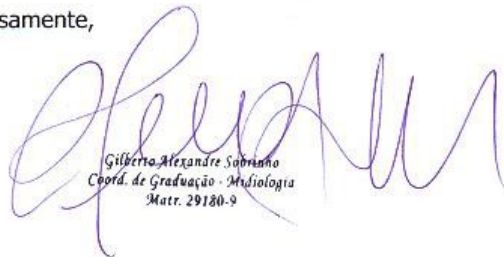 samente,
Gilberto Alexandre Sobrinho
Coord. de Graduação - Midiologia
Matr. 29180-9